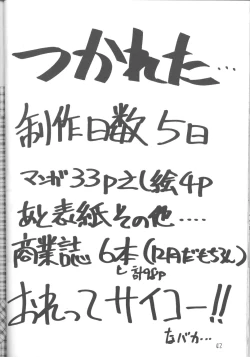 つかれた…
制作日数 5日
マンガ33pさし絵4p
あと表紙その他‥‥
商業誌 6本(12月だもちろん)
と計98p
おれってサイコー!!
なバカ…
62